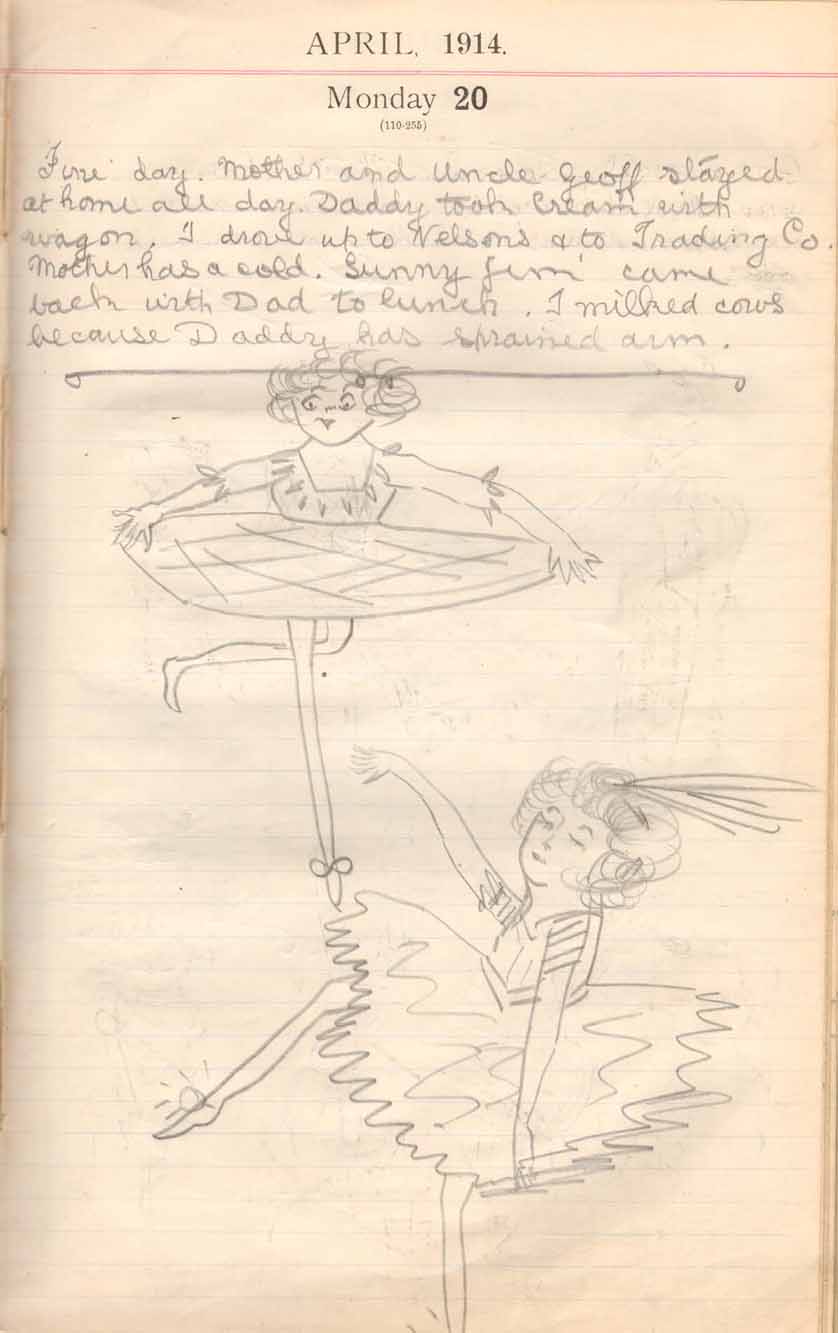 APRIL, 1914.
Monday 20
(110-255)
Fine day. Mother and Uncle Geoff stayed
at home all day. Daddy took Cream with
wagon. I drove up to Nelsons & to Trading Co.
Mother has a cold. Sunny Jim came
back with Dad to lunch. I milked cows
because Daddy has sprained arm.